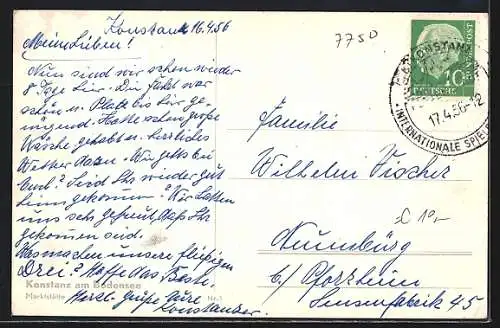 Konstanz 16.4.56
Meine Lieben!
Nun sind wir schon wieder
8 Tage hier. Die Fahrt war
schön u. Platz bis hier ge-
nügend. Hatte schon große
Wäsche gehabt u. herrliches
Wetter dazu. Wie geht's bei
Euch? Seid Ihr wieder gut
heim gekommen? Wir hatten
uns sehr gefreut, daß Ihr
gekommen seid.
Was machen unsere fleißigen
Drei? Hoffe das Beste.
Herzl. grüße Eure
Konstanzer.
Konstanz am Bodensee
Marktstätte
Nr. 1
7750
Familie
Wilhelm Fischer
C 10,-
b/ Pforzheim
Sensenfabrik 45
DEUTSCHE BUNDESPOST
10
KONSTANZ
17.4.56-12
INTERNATIONALE SPIELB